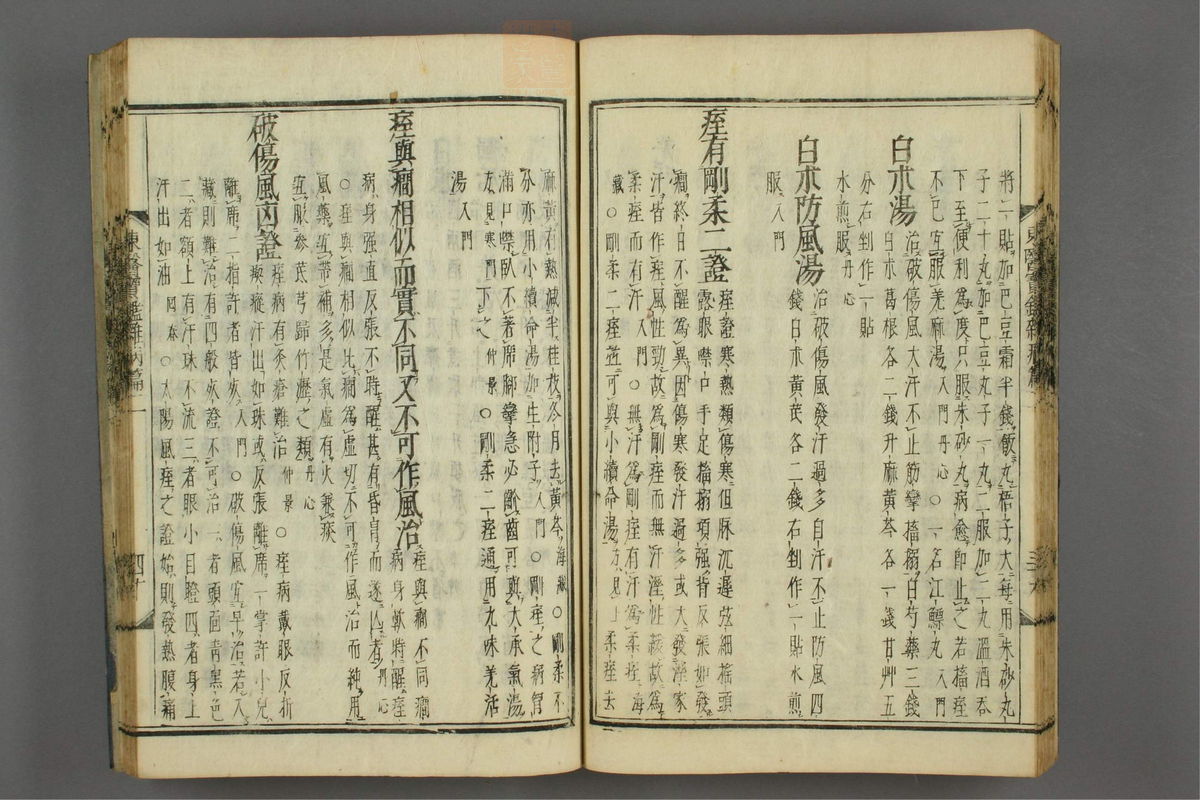 將一貼加巴豆霜半錢飯丸梧子大每用朱砂丸
子二十丸加巴豆丸子一丸二服加二丸溫酒吞
下至便利爲度只服朱砂丸病愈卽止之若搐痓
不已宜服羌麻湯入門丹心○一名江鰾丸入門
白朮湯
治破傷風大汗不止筋攣搐搦白芍藥三錢
白朮葛根各二錢升麻黃芩各一錢甘艸五
分右剉作一貼
水煎服丹心
白朮防風湯
治破傷風發汗過多自汗不止防風四
錢白朮黃芪各二錢右剉作一貼水煎
服入門
痓有剛柔二證
痓證寒熱類傷寒但脉沉遲弦細搖頭
露眼噤口手足搐搦項強背反張如發
癎終日不醒爲異因傷寒發汗過多或大發濕家
汗皆作痓風性勁故爲剛痓而無汗濕性緩故爲
柔痓而有汗入門○無汗爲剛痓有汗爲柔痓海
藏○剛柔二痓並可與小續命湯方見上柔痓去
麻黃有熱減半桂枝冬月去黃芩海藏○剛柔不
分亦用小續命湯加生附子入門○剛痓之病胷
滿口噤臥不著席脚攣急必齘齒可與大承氣湯
方見寒門下之仲景○剛柔二痓通用九味羌活
湯入門
痓與癎相似而實不同又不可作風治
痓與癎不同癎
病身軟時醒痓
病身強直反張不時醒甚有昏冒而遂亾者入門
○痓與癎相似比癎爲虛切不可作風治而純用
風藥宜帶補多是氣虛有火兼痰
宜服參芪芎歸竹瀝之類丹心
破傷風凶證
痓病有灸瘡難治仲景○痓病戴眼反折
瘈瘲汗出如珠或反張離席一掌許小兒
離席二指許者皆死入門○破傷風宜早治若入
藏則難治有四般死證不可治一者頭面靑黑色
二者額上有汗珠不流三者眼小目瞪四者身上
汗出如油回春○太陽風痓之證始則發熱腹痛
東醫寶鑑雜病篇
東醫寶鑑雜病篇二
四十